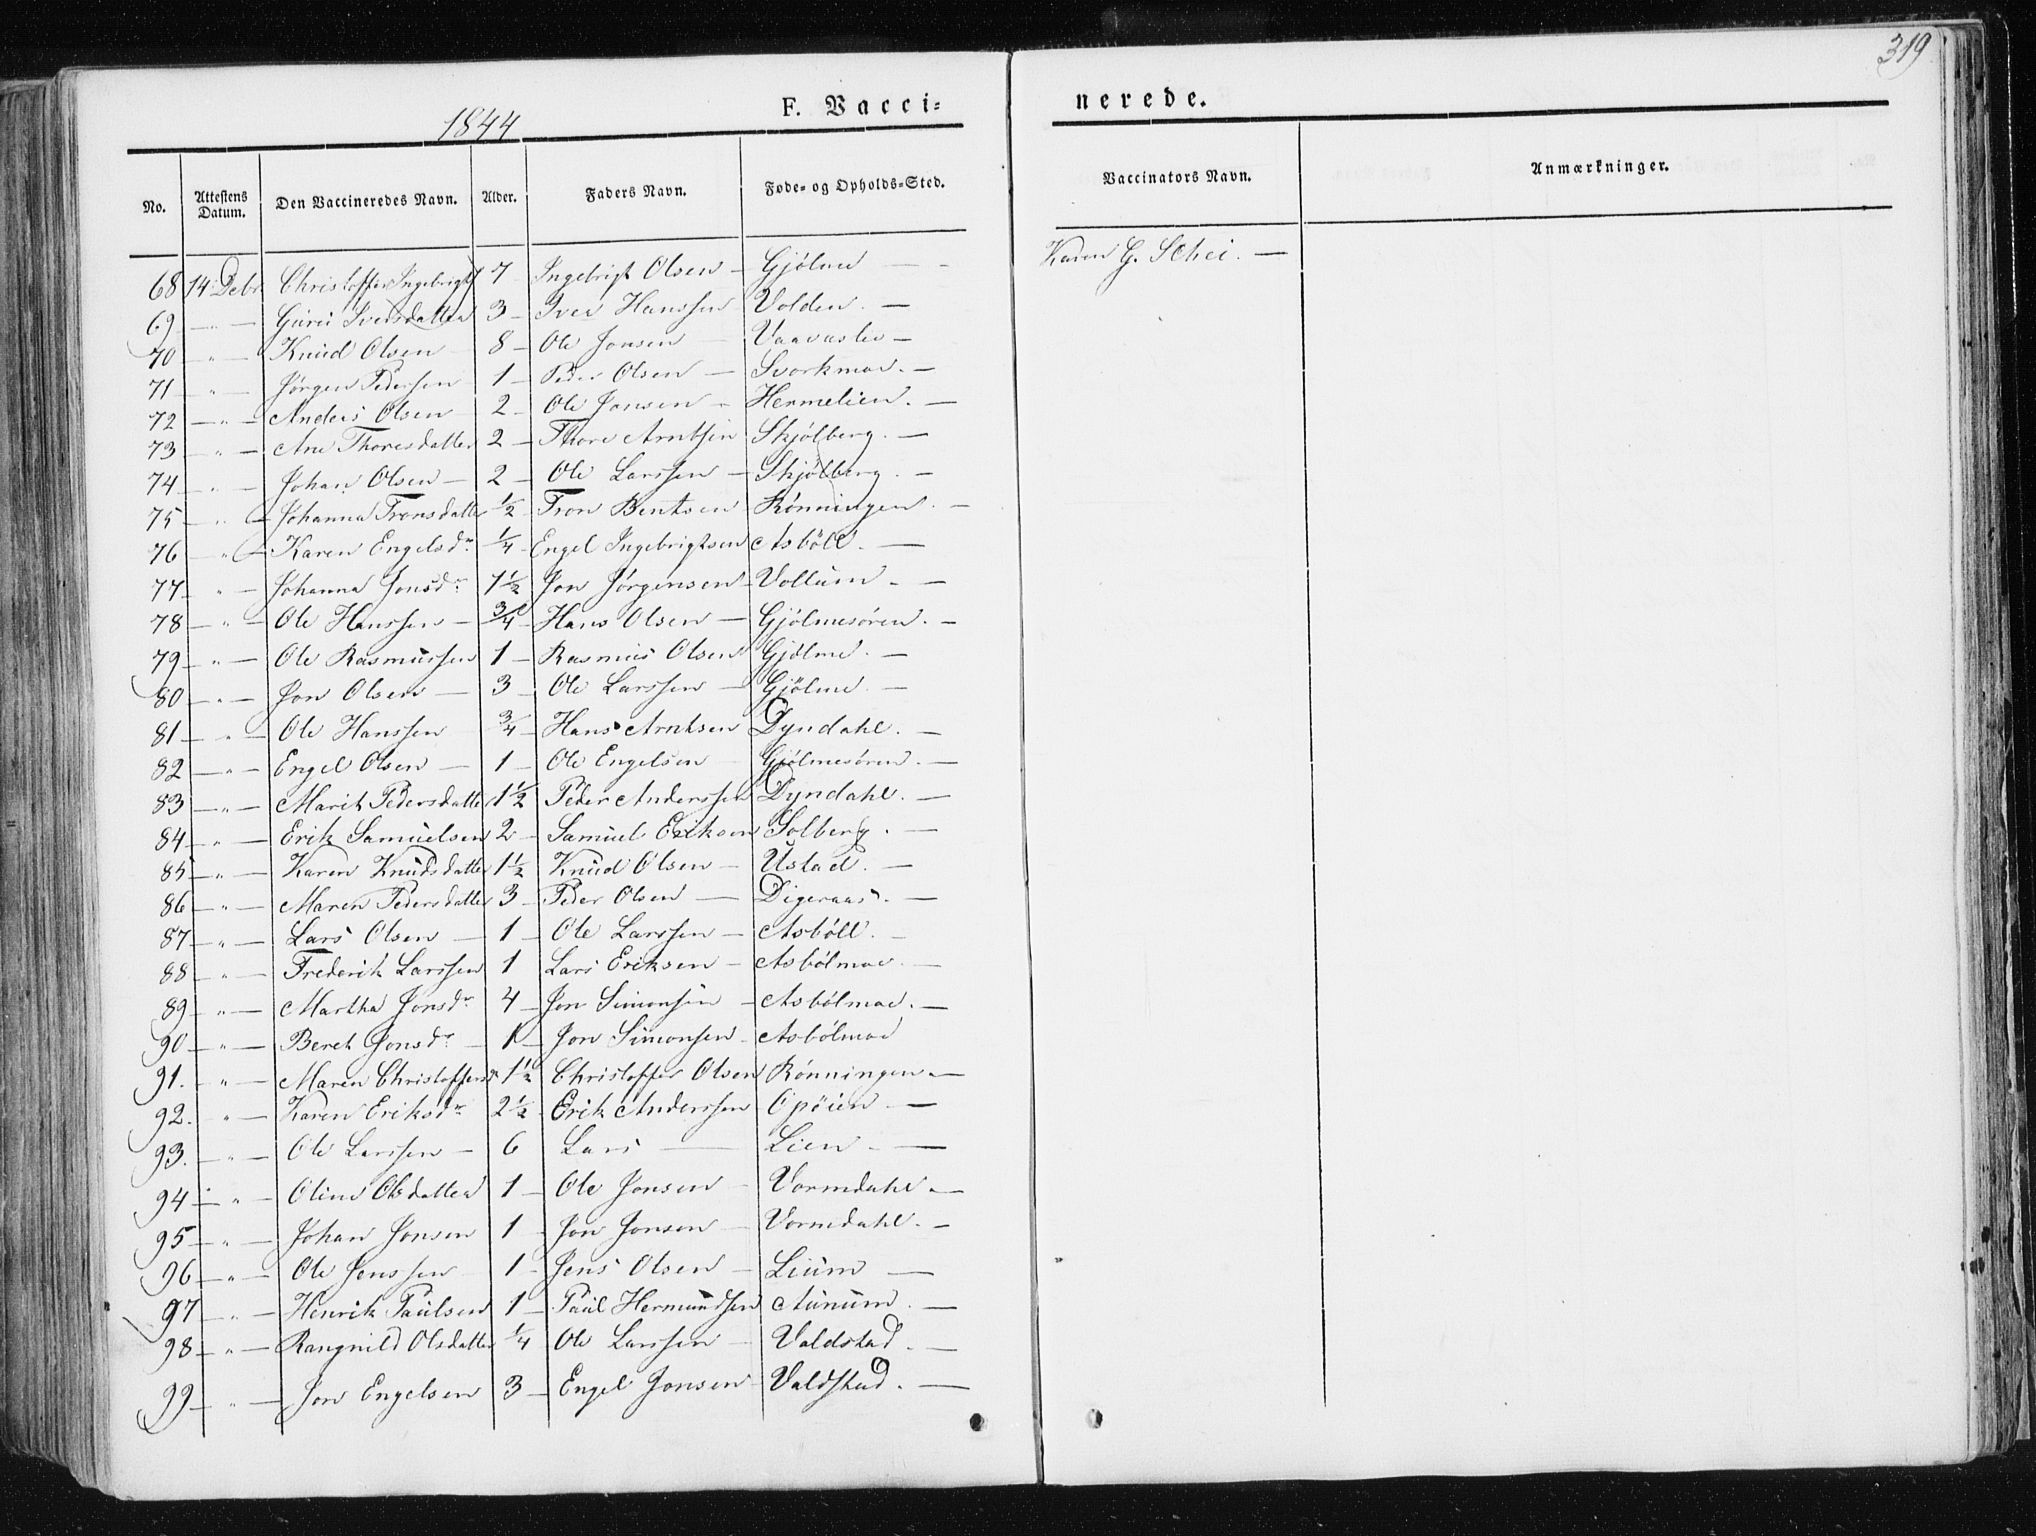 319
1844
F. Vacci-
nerede.
No. Attestens Datum. Den Vaccineredes Navn. Alder. Faders Navn. Føde- og Opholds-Sted. Vaccinators Navn. Anmærkninger.
68 14 Decbr Christoffer Ingebrigts 7 - Ingebrigt Olsen - Gjølme — Karen G. Schei. —
69 — " — Guru Iversdatter 3 - Iver Hanssen - Volden. —
70 — " — Knud Olsen 8 - Ole Jonsen — —
71 — " — Jørgen Pedersen 1 - Peder Olsen — Svorkmoe. —
72 — " — Anders Olsen 2 - Ole Jonsen - Hermelien. —
73 — " — Ane Thoresdatter 2 - Thore Arntsen Skjølberg. —
74 — " — Johan Olsen — 2 - Ole Larssen — Skjølberg. —
75 — " — Johanna Tronsdatter ½ - Tron Bentsen - Rønningen. —
76 — " — Karen Engelsdr ¼ - Engel Ingebrigtsen Asbøll. —
77 — " — Johanna Jonsdr 1½ Jon Jørgensen - Vollum. —
78 — " — Ole Hanssen — ¾ - Hans Olsen — Gjølmesøren. —
79 — " — Ole Rasmussen 1 - Rasmus Olsen Gjølme. —
80 — " — Jon Olsen — 3 - Ole Larssen — Gjølme. —
81 — " — Ole Hanssen ¾ - Hans Arntsen Dyndahl. —
82 — " — Engel Olsen — 1 - Ole Engelsen Gjølmesøren. —
83 — " — Marit Pedersdatter 1½ Peder Anderssen Dyndahl. —
84 — " — Erik Samuelsen 2 - Samuel Eriksen Solberg. —
85 — " — Karen Knudsdatter 1½ Knud Olsen — Ustad. —
86 — " — Maren Pedersdatter 3 - Peder Olsen — Digeraas. —
87 — " — Lars Olsen — 1 - Ole Larssen — Asbøll. —
88 — " — Frederik Larssen 1 Lars Eriksen — Asbølmoe. —
89 — " — Martha Jonsdr 4 - Jon Simonsen - Asbølmoe. —
90 — " — Beret Jonsdr - 1 - Jon Simonsen - Asbølmoe
91. " — Maren Christoffersdr 1½ Christoffer Olsen Rønningen —
92. " — Karen Eriksdr 2½ Erik Anderssen Opøien —
93. — " — Ole Larssen — 6 Lars — Lien. —
94 — " — Oline Olsdatter 1 - Ole Jonsen — Vormdahl —
95 — " — Johan Jonsen 1 - Jon Jonsen — Vormdahl. —
96 — " — Ole Jenssen 1 - Jens Olsen — Lium —
97 — " — Henrik Paulsen 1 - Paul Hermundsen Aunum. —
98 — " — Rangnild Olsdatter ¼ Ole Larssen — Valdstad. —
99 — " — Jon Engelsen 3 - Engel Jonsen - Valdstad. —